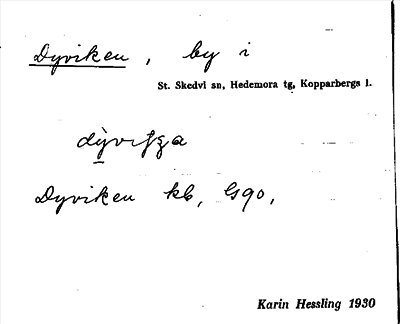 Dyviken, by i
St. Skedvi sn, Hedemora tg, Kopparbergs l.
Dyviken kb, G90,
Karin Hessling 1930